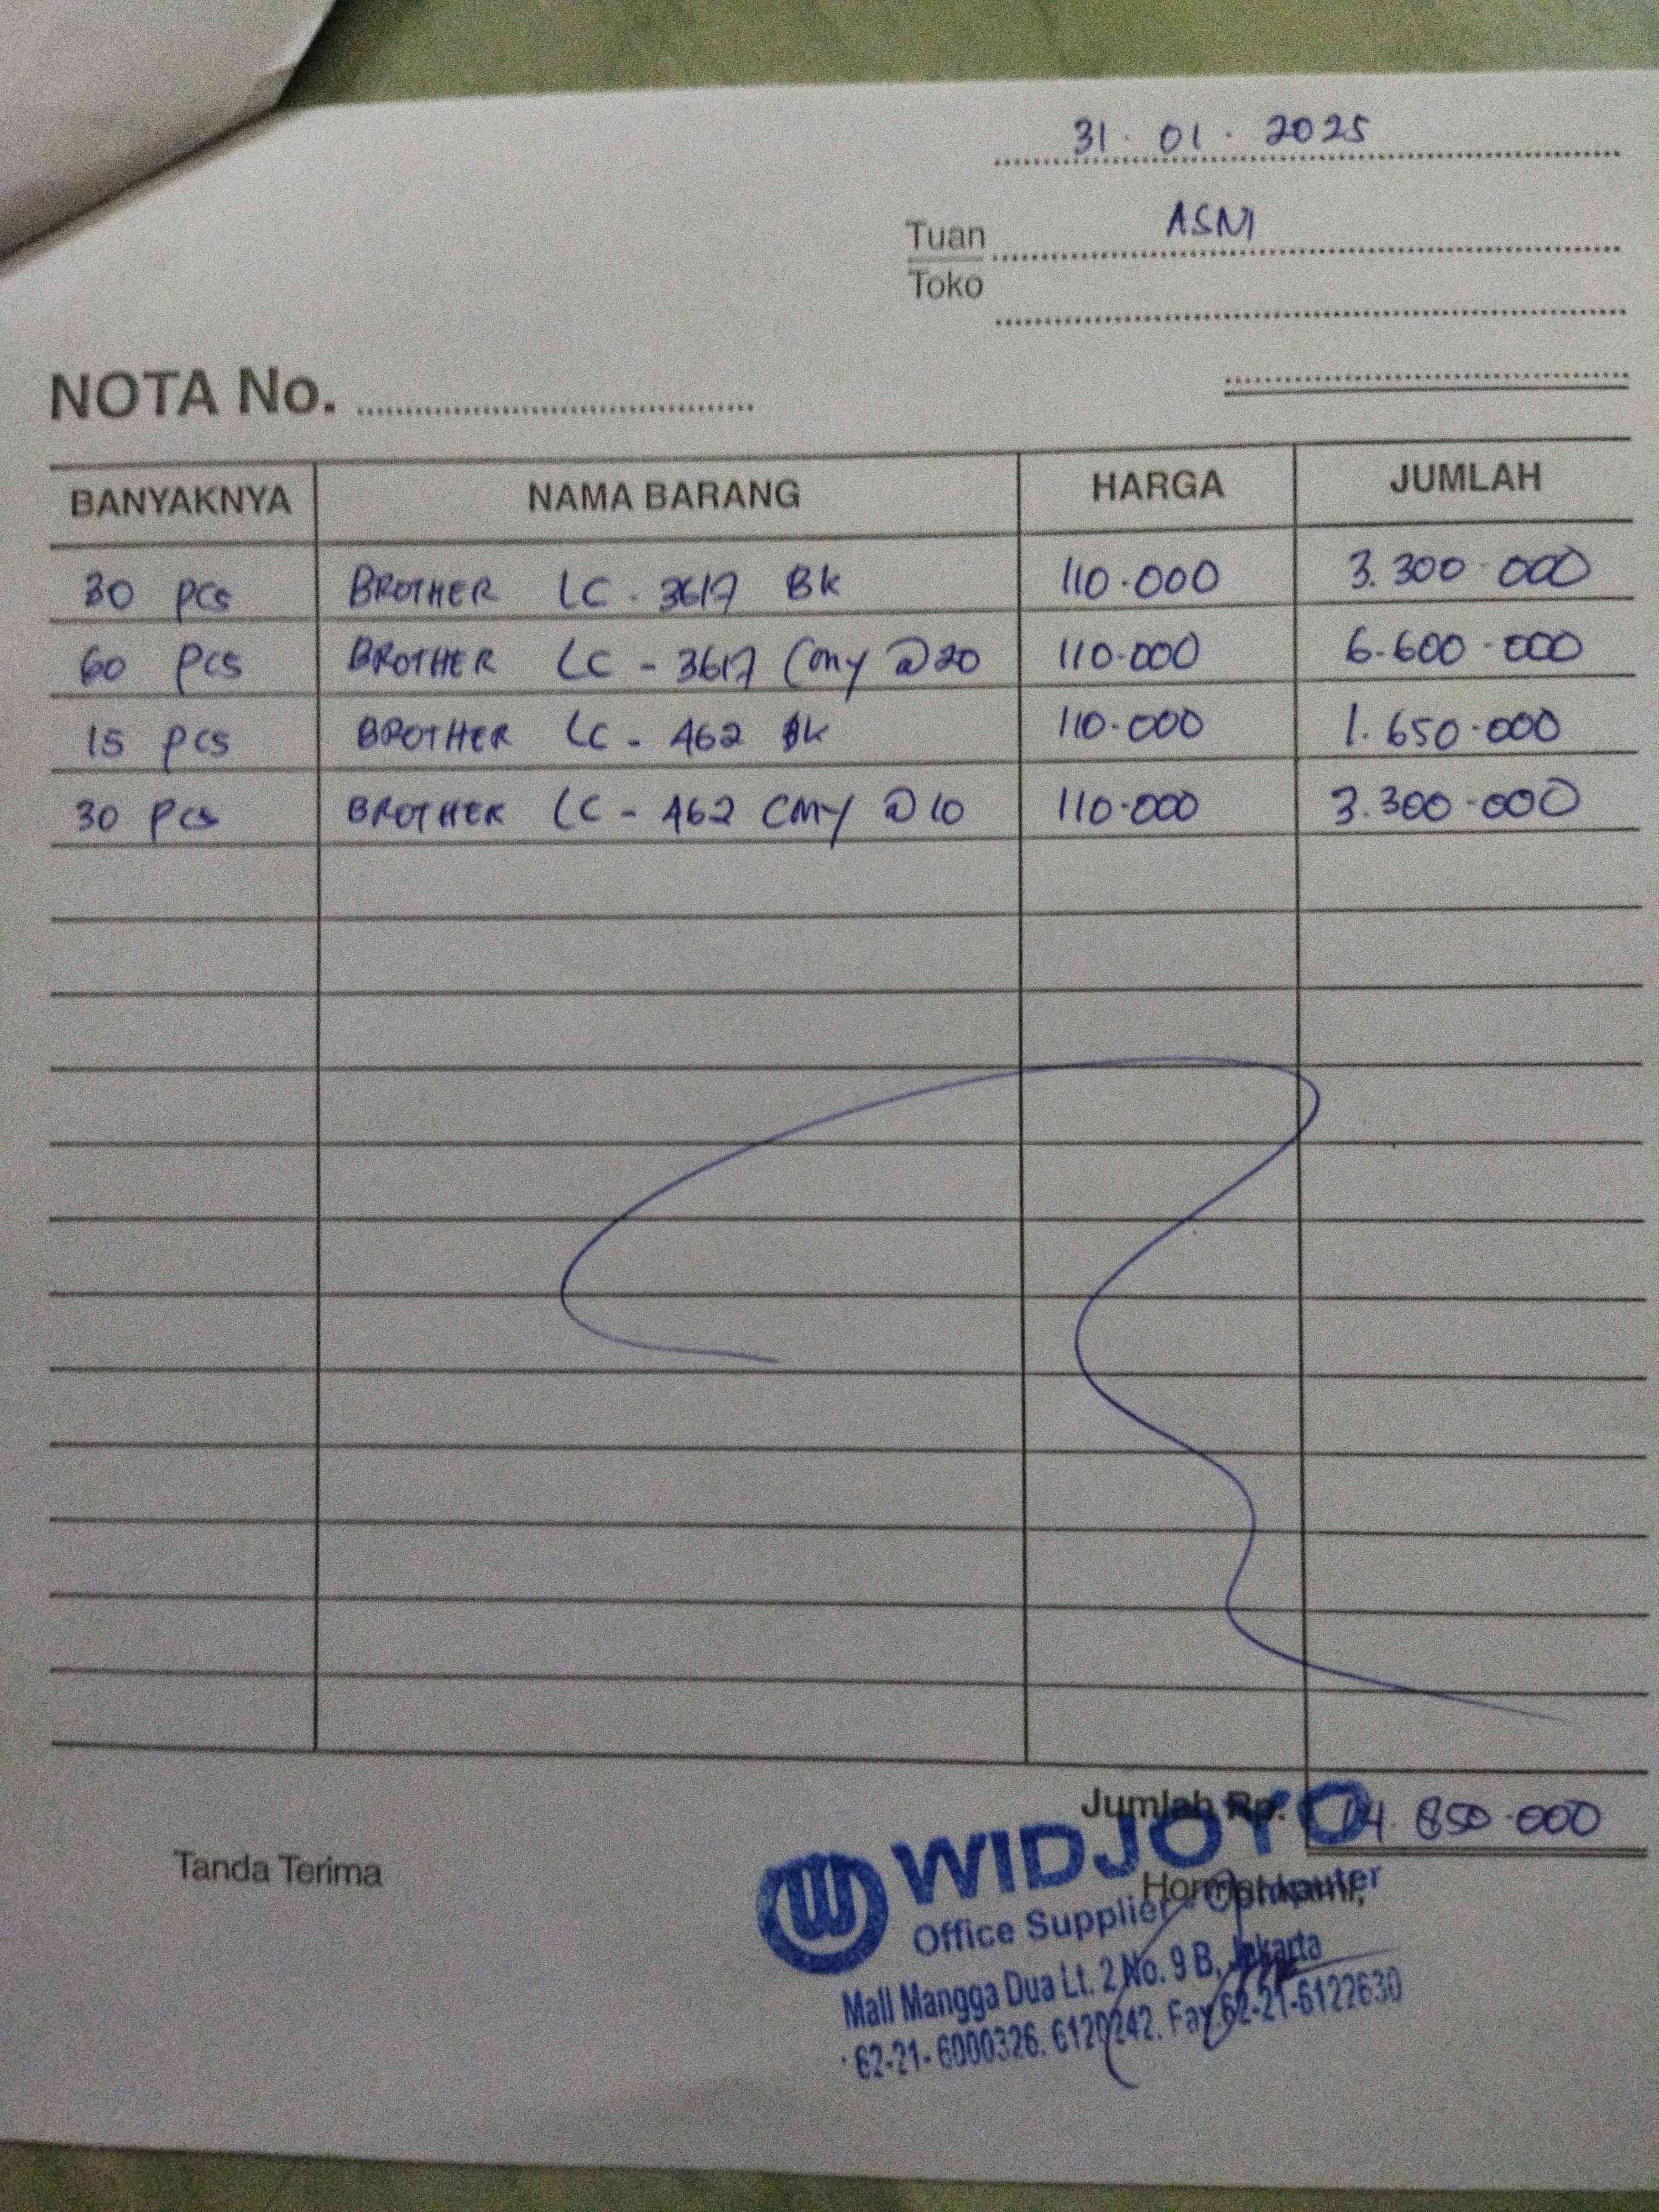 31 . 01 . 2025
Tuan ASNI
Toko
NOTA No.
BANYAKNYA NAMA BARANG HARGA JUMLAH
30 pcs BROTHER LC - 3617 BK 110.000 3.300.000
60 pcs BROTHER LC - 3617 Cmy @20 110.000 6.600.000
15 pcs BROTHER LC - 462 BK 110.000 1.650.000
30 pcs BROTHER LC - 462 CMY @10 110.000 3.300.000
Jumlah Rp. 14.850.000
Tanda Terima Hormat kami,
WIDJOYO
Office Supplier - Computer
Mall Mangga Dua Lt. 2 No. 9 B, Jakarta
62-21- 6000326. 6120242. Fax.62-21-6122630